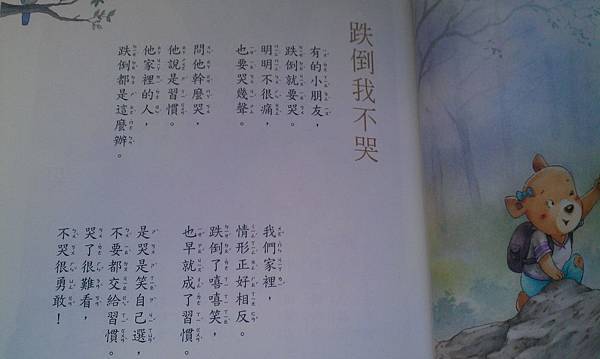 跌倒我不哭
有的小朋友，
跌倒就要哭。
明明不很痛，
也要哭幾聲。
問他幹麼哭，
他說是習慣。
他家裡的人，
跌倒都是這麼辦。
我們家裡，
情形正好相反。
跌倒了嘻嘻笑，
也早就成了習慣。
是哭是笑自己選，
不要都交給習慣。
哭了很難看，
不哭很勇敢！